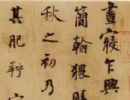 晝寢乍興
簡翰猥賜
秋之初乃
其肥羜實